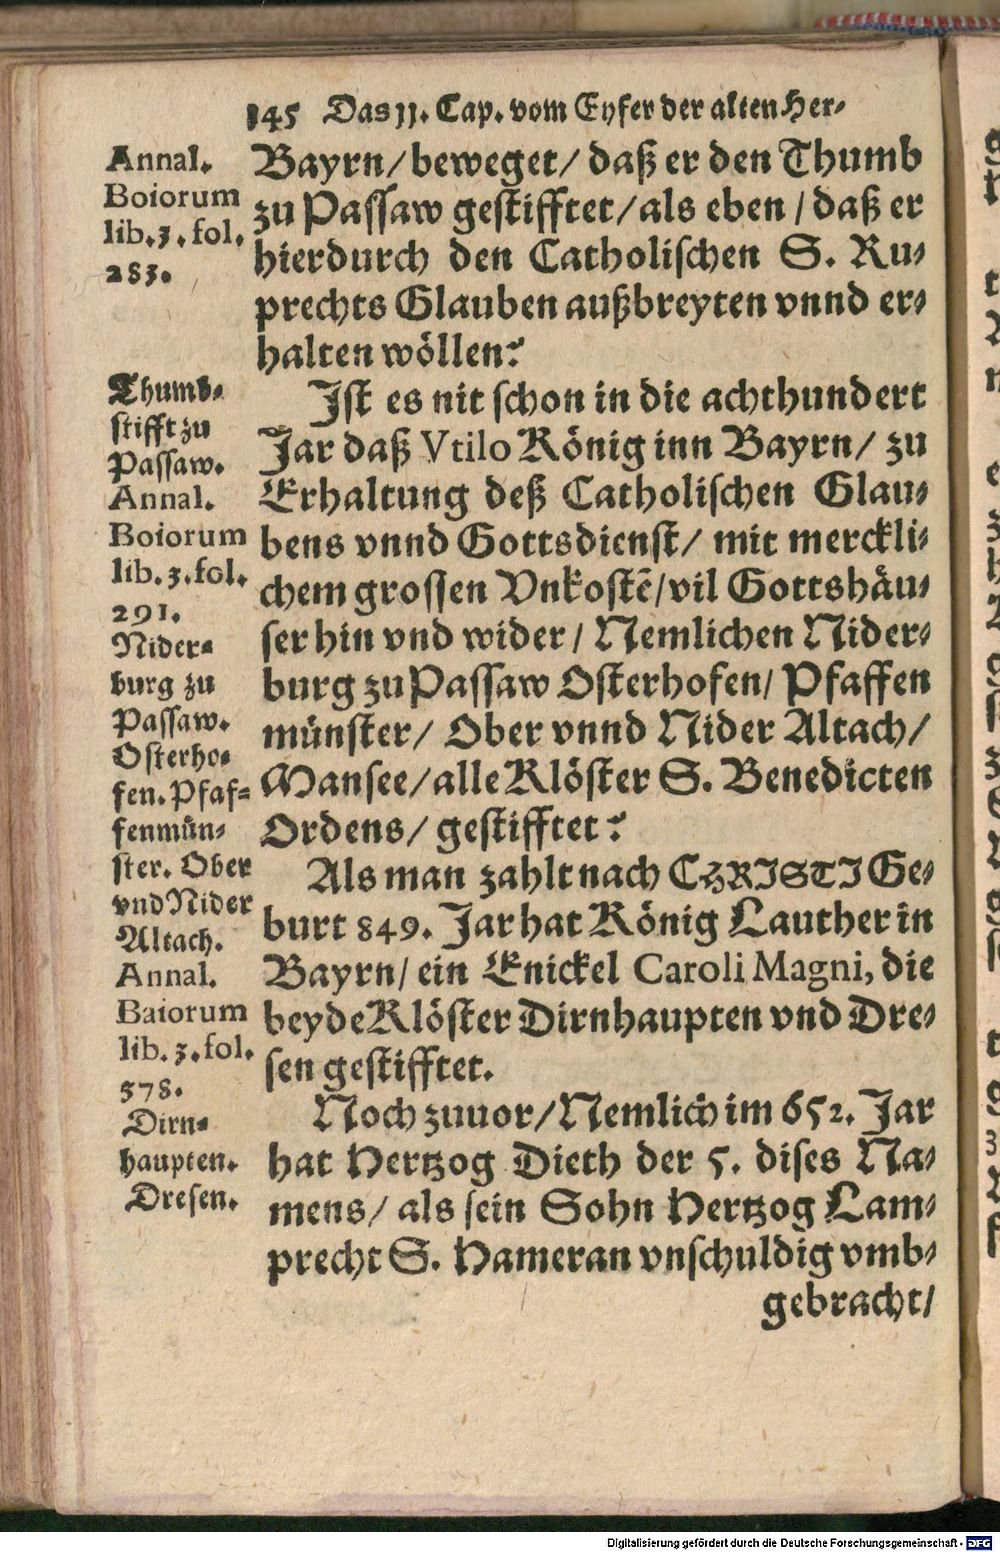 145 Das 11. Cap. vom Eyfer der alten Her⸗
Annal.
Boiorum
lib. 3. fol.
283.
Bayrn / beweget / daß er den Thumb
zu Passaw gestifftet / als eben / daß er
hierdurch den Catholischen S. Ru⸗
prechts Glauben außbreyten vnnd er⸗
halten wöllen?
Thumb⸗
stifft zu
Passaw.
Annal.
Boiorum
lib. 3. fol.
291.
Nider⸗
burg zu
Passaw.
Osterho⸗
fen. Pfaf⸗
fenmün⸗
ster. Ober
vnd Nider
Altach.
Ist es nit schon in die achthundert
Jar daß Vtilo König inn Bayrn / zu
Erhaltung deß Catholischen Glau⸗
bens vnnd Gottsdienst / mit merckli⸗
chem grossen Vnkostē / vil Gottshäu⸗
ser hin vnd wider / Nemlichen Nider⸗
burg zu Passaw Osterhofen / Pfaffen
münster / Ober vnnd Nider Altach /
Mansee / alle Klöster S. Benedicten
Ordens / gestifftet?
Annal.
Baiorum
lib. 3. fol.
578.
Dirn⸗
haupten.
Dresen.
Als man zahlt nach CHRISTI Ge⸗
burt 849. Jar hat König Lauther in
Bayrn / ein Enickel Caroli Magni, die
beyde Klöster Dirnhaupten vnd Dre⸗
sen gestifftet.
Noch zuuor / Nemlich im 652. Jar
hat Hertzog Dieth der 5. dises Na⸗
mens / als sein Sohn Hertzog Lam⸗
precht S. Hameran vnschuldig vmb⸗
gebracht /
Digitalisierung gefördert durch die Deutsche Forschungsgemeinschaft - DFG